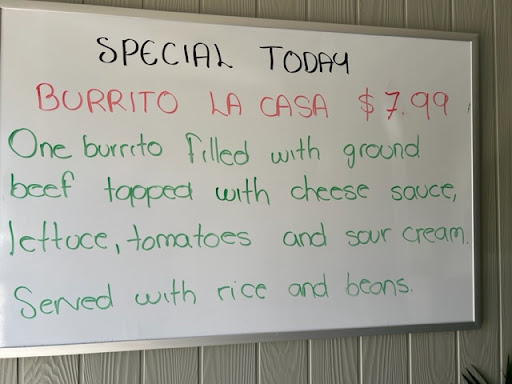 SPECIAL TODAY
BURRITO LA CASA $7.99
One burrito filled with ground
beef topped with cheese sauce,
lettuce, tomatoes and sour cream.
Served with rice and beans.